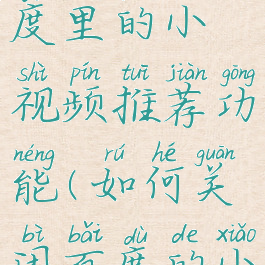 度里的小
shì pín tuī jiàn gōng
视频推荐功
néng rú hé guān
能(如何关
bì bǎi dù de xiǎo
闭百度的小